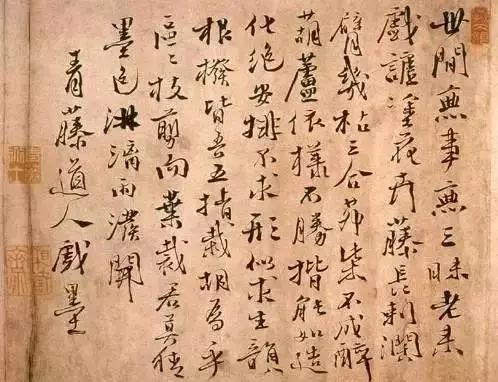 世間無事無三昧老來
戲謔塗花卉藤長刺闊
臂幾枯三合茅柴不成醉
葫蘆依樣不勝揩能如造
化絕安排不求形似求生韻
根撥皆吾五指栽胡為乎
區々枝剪而葉裁君莫猜
墨色淋漓雨撥開
青藤道人戲墨